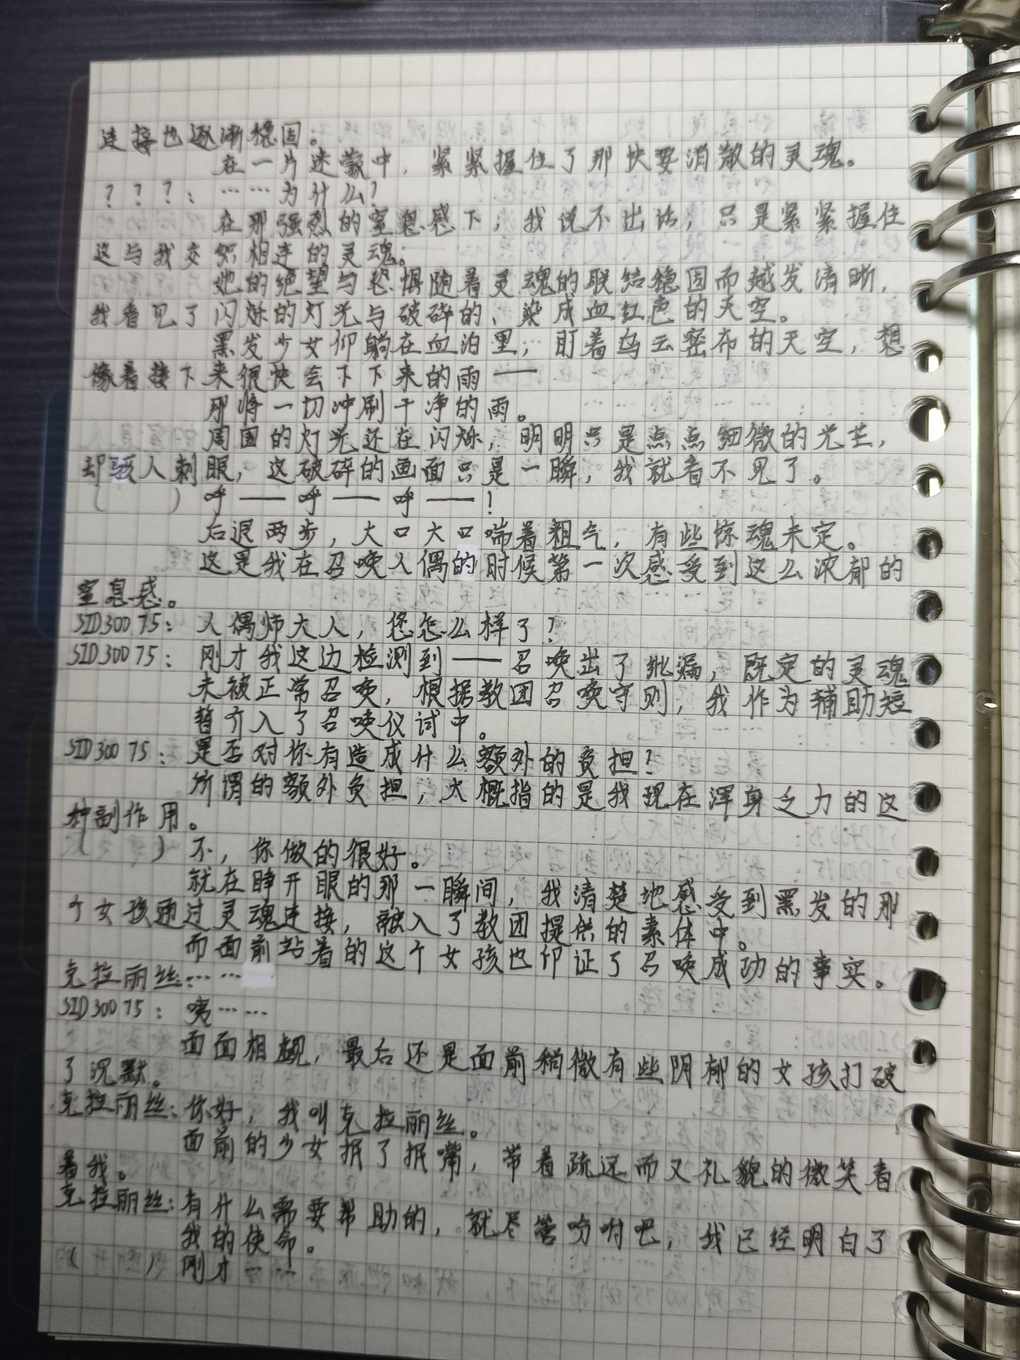 连接也逐渐稳固。
在一片迷蒙中，紧紧握住了那快要消散的灵魂。
？？？：……为什么？
在那强烈的窒息感下，我说不出话，只是紧紧握住
这与我交织相连的灵魂。
她的绝望与恐惧随着灵魂的联结稳固而越发清晰，
我看见了闪烁的灯光与破碎的、染成血红色的天空。
黑发少女仰躺在血泊里，盯着乌云密布的天空，想
像着接下来很快会下下来的雨——
那将一切冲刷干净的雨。
周围的灯光还在闪烁，明明只是点点细微的光芒，
却驳人刺眼，这破碎的画面只是一瞬，我就看不见了。
（　　）呼——呼——呼——！
后退两步，大口大口喘着粗气，有些惊魂未定。
这是我在召唤人偶的时候第一次感受到这么浓郁的
窒息感。
SID30075：人偶师大人，您怎么样了？
SID30075：刚才我这边检测到——召唤出了纰漏，既定的灵魂
未被正常召唤，根据教团召唤守则，我作为辅助短
暂介入了召唤仪试中。
SID30075：是否对你有造成什么额外的负担？
所谓的额外负担，大概指的是我现在浑身乏力的这
种副作用。
（　　）不，你做的很好。
就在睁开眼的那一瞬间，我清楚地感受到黑发的那
个女孩通过灵魂连接，融入了教团提供的素体中。
而面前站着的这个女孩也印证了召唤成功的事实。
克拉丽丝：……
SID30075：咦……
面面相觑，最后还是面前稍微有些阴郁的女孩打破
了沉默。
克拉丽丝：你好，我叫克拉丽丝。
面前的少女抿了抿嘴，带着疏远而又礼貌的微笑看
着我。
克拉丽丝：有什么需要帮助的，就尽管吩咐吧，我已经明白了
我的使命。
（　　）刚才……